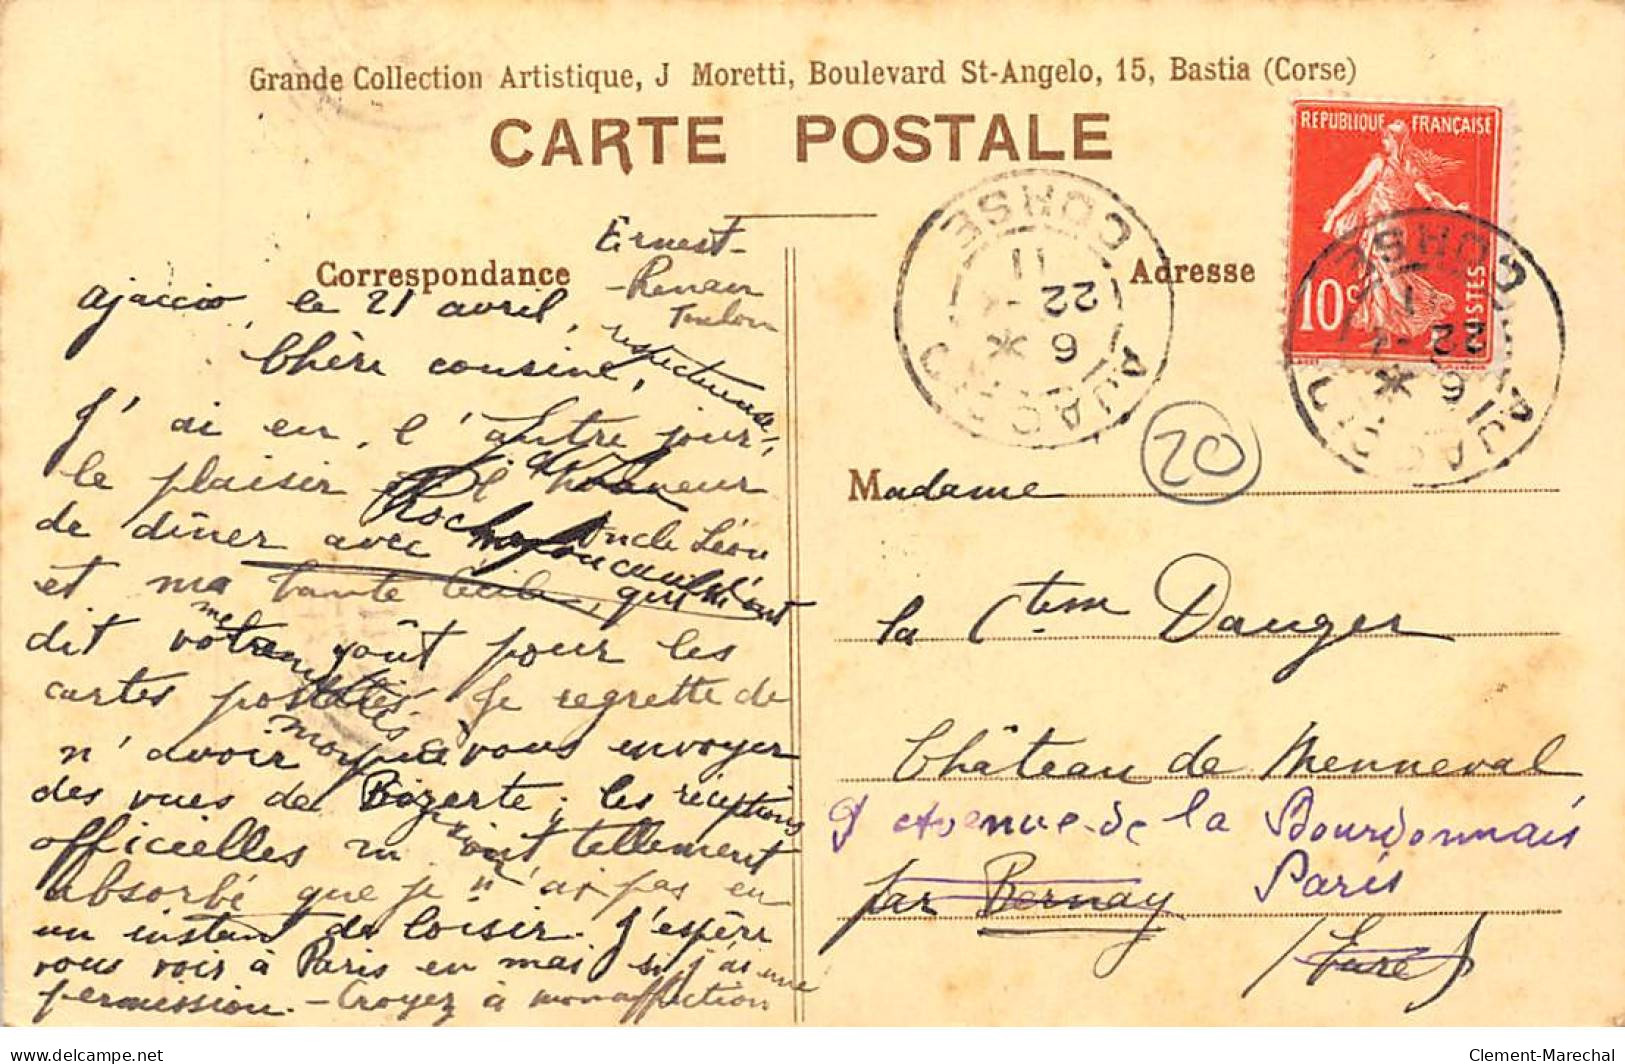 Grande Collection Artistique, J Moretti, Boulevard St-Angelo, 15, Bastia (Corse)
CARTE POSTALE
Correspondance
Ajaccio, le 21 avril,
Chère cousine,
J'ai eu, l'autre jour,
le plaisir et l'honneur
de dîner avec mon oncle Léon
et ma tante Cécile, qui m'ont
dit votre goût pour les
cartes postales. Je regrette de
n'avoir pu vous envoyer
des vues de Bizerte; les réceptions
officielles m'ont tellement
absorbé que je n'ai pas eu
un instant de loisir. J'espère
vous voir à Paris en mai si j'ai une
permission. - Croyez à mon affection
respectueuse,
Ernest-
Renan
Toulon
Adresse
REPUBLIQUE FRANÇAISE
10c
POSTES
AJACCIO CORSE
6 *
22 - 4
11
AJACCIO CORSE
6 *
22 - 4
11
20
Madame
la Ctesse Dauger
Château de Menneval
9 Avenue de la Bourdonnais
Paris
par Bernay
(Eure)
delcampe.net
Clement-Marechal